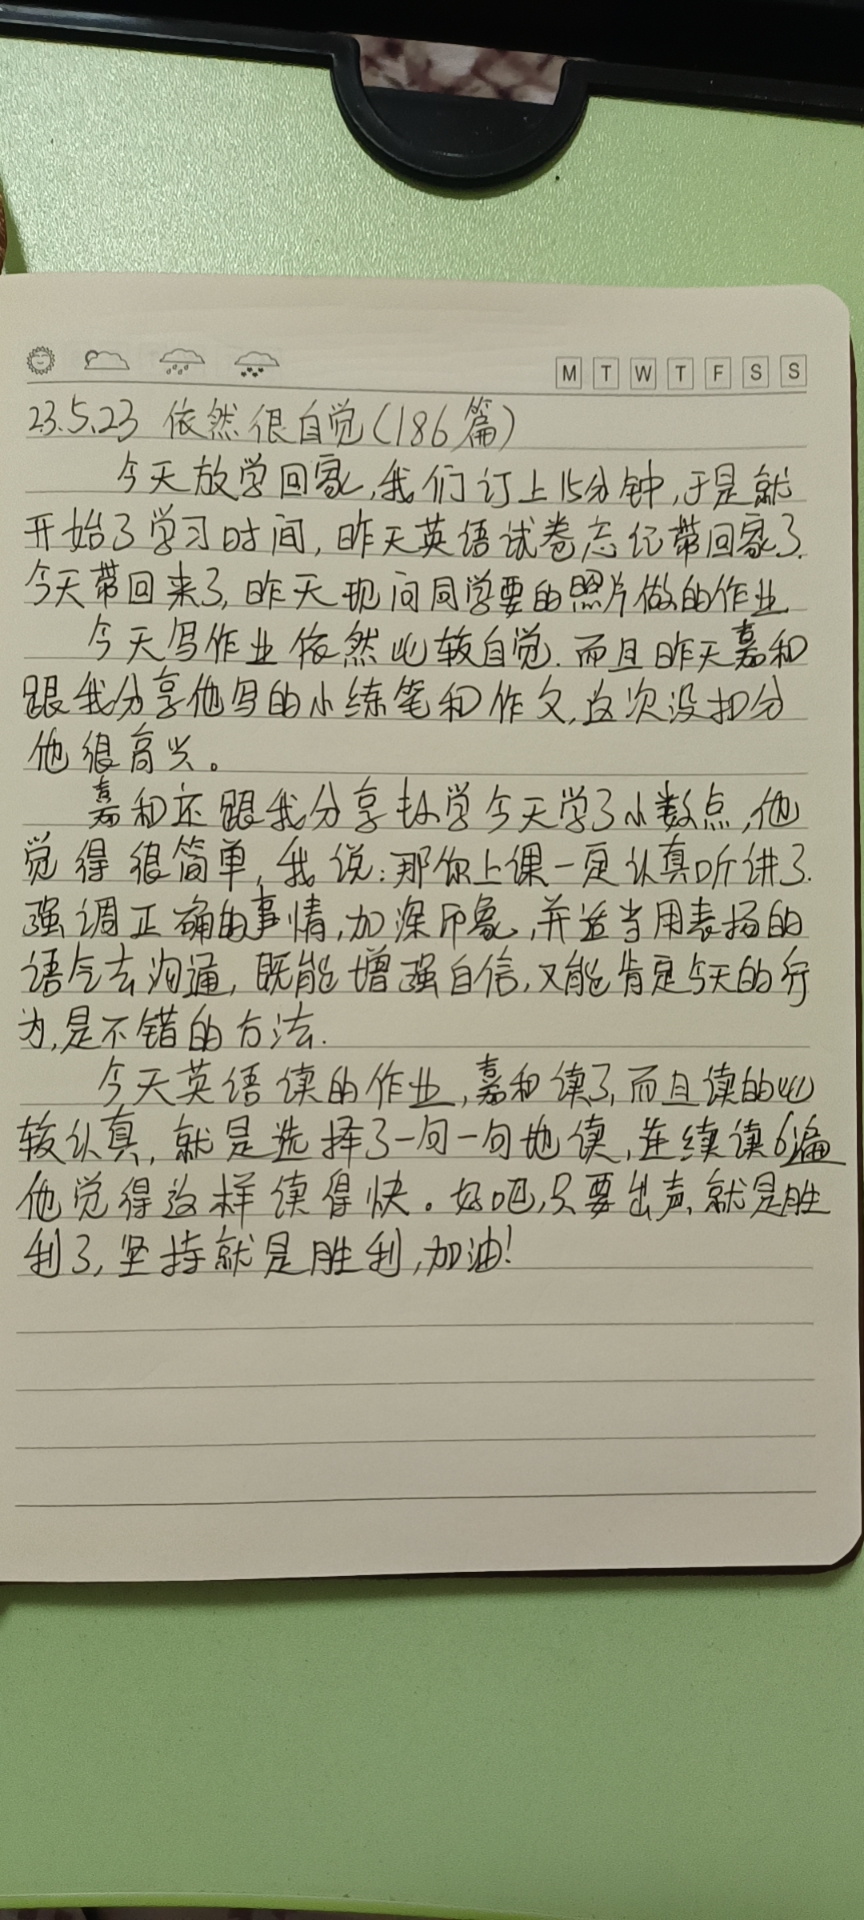 M T W T F S S
23.5.23 依然很自觉(186篇)
今天放学回家,我们订上15分钟,于是就
开始了学习时间,昨天英语试卷忘记带回家了.
今天带回来了,昨天现问同学要的照片做的作业
今天写作业依然比较自觉.而且昨天嘉和
跟我分享他写的小练笔和作文,这次没扣分
他很高兴。
嘉和还跟我分享数学今天学了小数点,他
觉得很简单,我说:那你上课一定认真听讲了.
强调正确的事情,加深印象,并适当用表扬的
语气去沟通,既能增强自信,又能肯定今天的行
为,是不错的方法.
今天英语读的作业,嘉和读了,而且读的比
较认真,就是选择了一句一句地读,连续读6遍
他觉得这样读得快。好吧,只要出声,就是胜
利了,坚持就是胜利,加油!